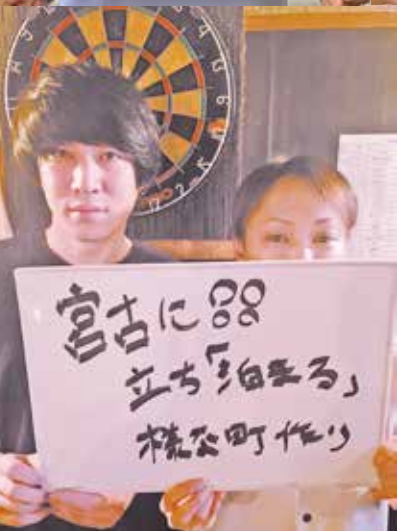 宮古に
立ち「泊まる」
様な町作り